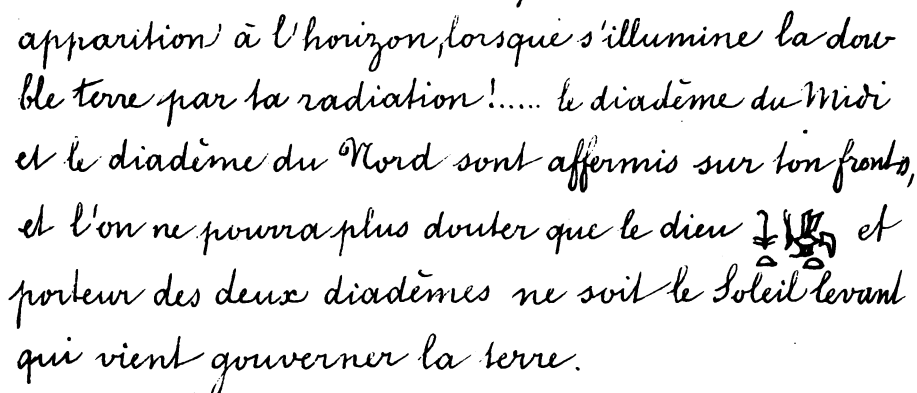 apparition à l'horizon, lorsque s'illumine la dou-
ble terre par ta radiation!..... le diadème du Midi
et le diadème du Nord sont affermis sur ton front,
et l'on ne pourra plus douter que le dieu 𓇓𓏏 et
porteur des deux diadèmes ne soit le Soleil levant
qui vient gouverner la terre.